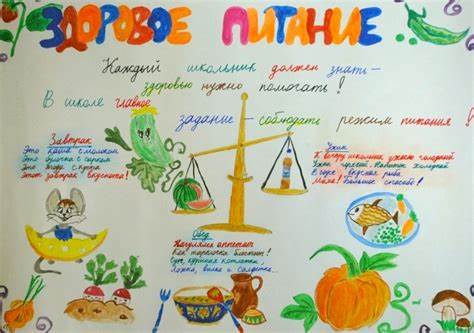 ЗДОРОВОЕ ПИТАНИЕ
Каждый школьник должен знать –
здоровью нужно помогать!
В школе главное
задание – соблюдать режим питания!
Завтрак
Это каша с молоком
Это булочка с сырком
Это
Этот завтрак вкуснота!
Ужин
К вечеру школьник ужасно голодный
Ужин
В горе вкусная рыба
Мама! Большое спасибо!
Обед
Нагулялся аппетит
Как тарелочки блестят!
Суп, куриная котлетка,
Ложка, вилка и салфетка...